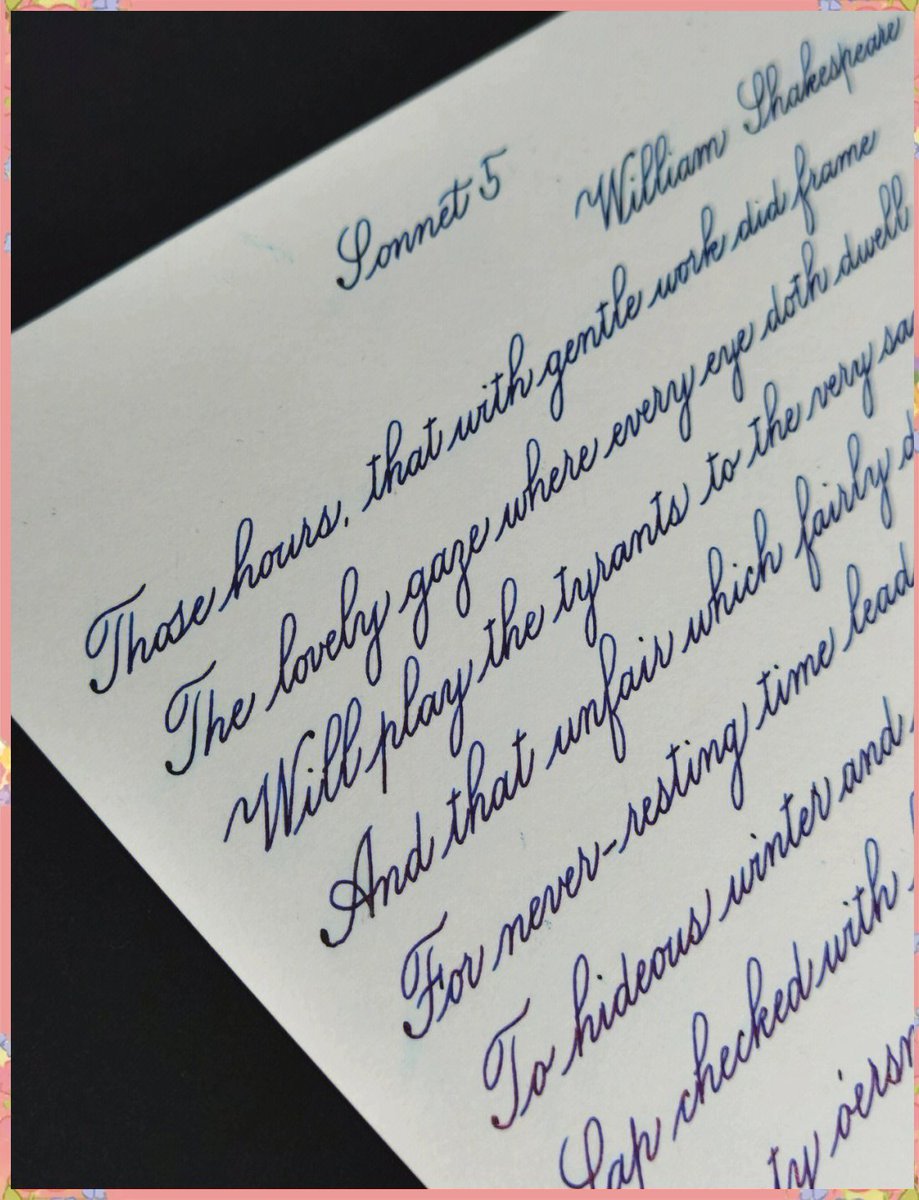 Sonnet 5
William Shakespeare
Those hours, that with gentle work did frame
The lovely gaze where every eye doth dwell
Will play the tyrants to the very sa
And that unfair which fairly d
For never-resting time lead
To hideous winter and
Sap checked with
ty óersn